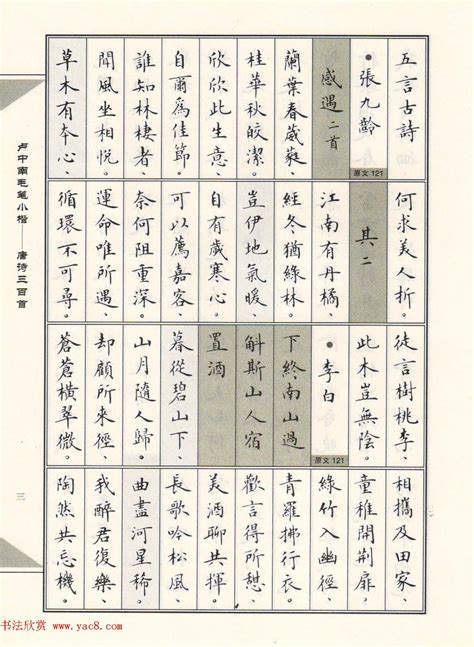 五言古詩
•張九齡
感遇二首
原文121
蘭葉春葳蕤、
桂華秋皎潔。
欣欣此生意、
自爾爲佳節。
誰知林棲者、
聞風坐相悅。
草木有本心、
何求美人折。
其二
江南有丹橘、
經冬猶綠林。
豈伊地氣暖、
自有歲寒心。
可以薦嘉客、
奈何阻重深。
運命唯所遇、
循環不可尋。
徒言樹桃李、
此木豈無陰。
•李白
原文121
下終南山過
斛斯山人宿
置酒
暮從碧山下、
山月隨人歸。
却顧所來徑、
蒼蒼橫翠微。
相攜及田家、
童稚開荊扉。
綠竹入幽徑、
青蘿拂行衣。
歡言得所憩、
美酒聊共揮。
長歌吟松風、
曲盡河星稀。
我醉君復樂、
陶然共忘機。
卢中南毛笔小楷——唐诗三百首
三
书法欣赏 www.yac8.com